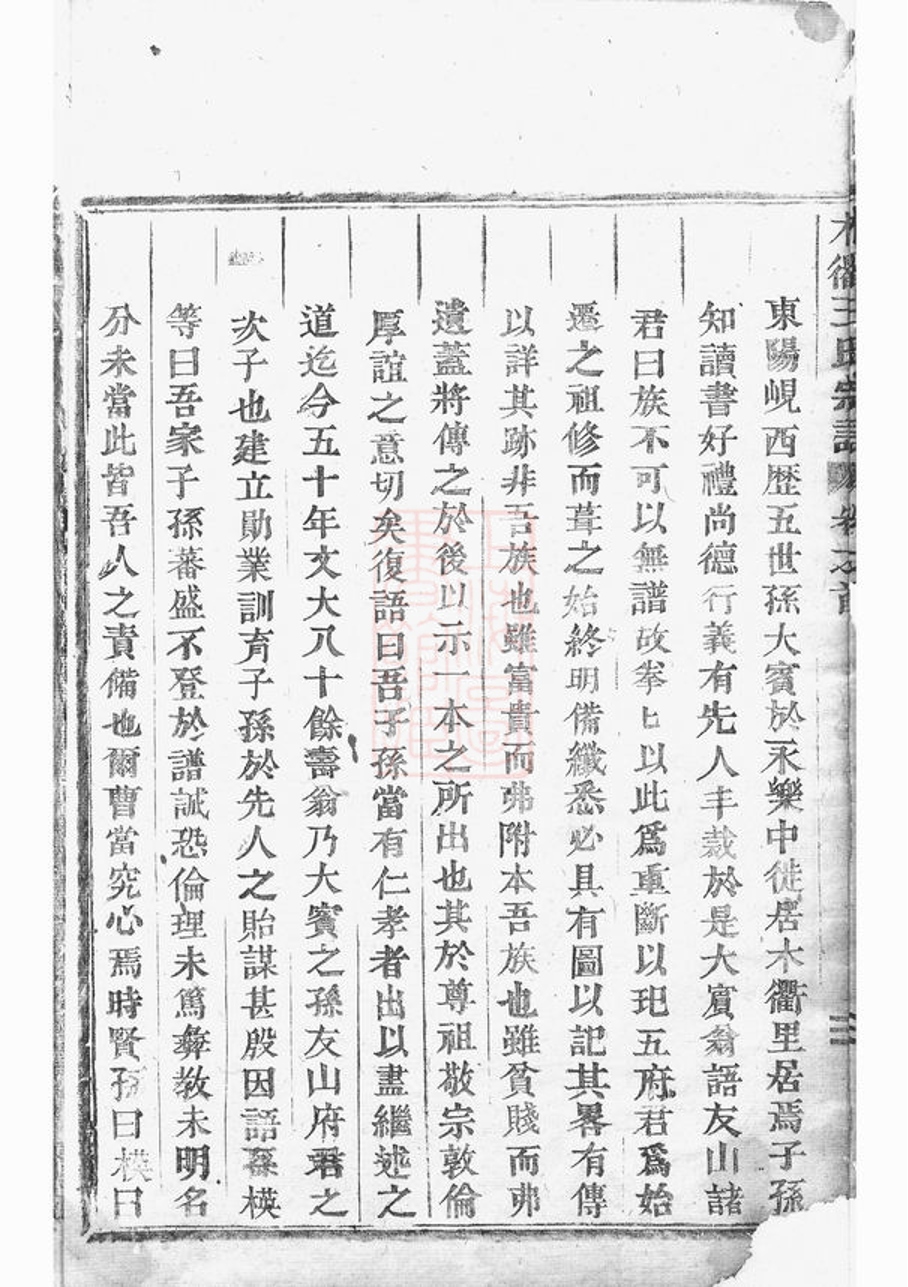 木衢王氏宗譜 卷之首 三
東陽峴西歷五世孫大賓於永樂中徙居木衢里居焉子孫
知讀書好禮尚德行義有先人丰裁於是大賓翁語友山諸
君曰族不可以無譜故拳匕以此爲重斷以玘五府君爲始
遷之祖修而葺之始終明備纖悉必具有圖以記其畧有傳
以詳其跡非吾族也雖富貴而弗附本吾族也雖貧賤而弗
遺蓋將傳之於後以示一本之所出也其於尊祖敬宗敦倫
厚誼之意切矣復語曰吾子孫當有仁孝者出以盡繼述之
道迄今五十年文大八十餘壽翁乃大賓之孫友山府君之
次子也建立勛業訓育子孫於先人之貽謀甚殷因語孫模
等曰吾家子孫蕃盛不登於譜誠恐倫理未篤彝教未明名
分未當此皆吾人之責備也爾曹當究心焉時賢孫曰模曰